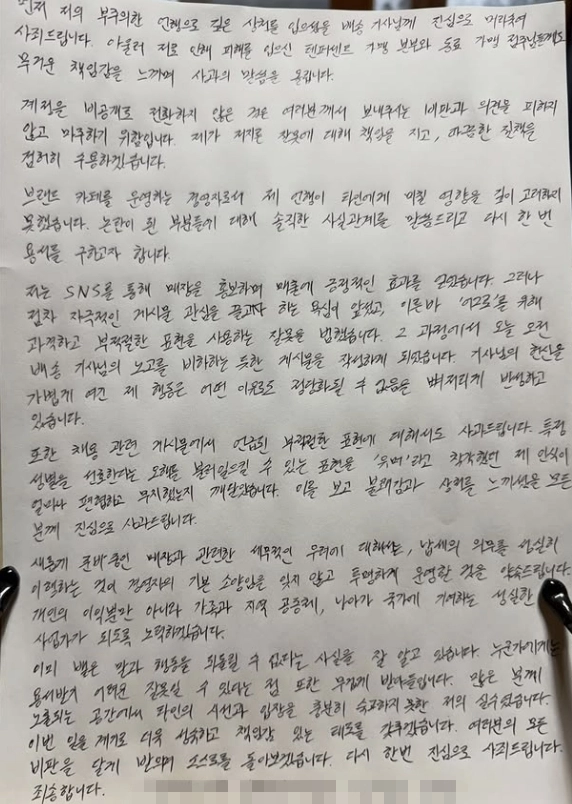 먼저 저의 부주의한 언행으로 깊은 상처를 입으셨을 배송 기사님께 진심으로 머리숙여
사죄드립니다. 아울러 저로 인해 피해를 입으신 텐퍼센트 가맹 본부와 동료 가맹 점주님들께도
무거운 책임감을 느끼며 사과의 말씀을 올립니다.
계정을 비공개로 전환하지 않은 것은 여러분께서 보내주시는 비판과 의견을 피하지
않고 마주하기 위함입니다. 제가 저지른 잘못에 대해 책임을 지고, 따끔한 질책을
겸허히 수용하겠습니다.
브랜드 카페를 운영하는 경영자로서 제 언행이 타인에게 미칠 영향을 깊이 고려하지
못했습니다. 논란이 된 부분들에 대해 솔직한 사실관계를 말씀드리고 다시 한 번
용서를 구하고자 합니다.
저는 SNS를 통해 매장을 홍보하며 매출에 긍정적인 효과를 얻었습니다. 그러나
점차 자극적인 게시물 관심을 끌고자 하는 욕심이 앞섰고, 이른바 '어그로'를 위해
과격하고 부적절한 표현을 사용하는 잘못을 범했습니다. 그 과정에서 오늘 오전
배송 기사님의 노고를 비하하는 듯한 게시물을 작성하게 되었습니다. 기사님의 헌신을
가볍게 여긴 제 행동은 어떤 이유로도 정당화될 수 없음을 뼈저리게 반성하고
있습니다.
또한 채용 관련 게시물에서 언급된 부적절한 표현에 대해서도 사과드립니다. 특정
성별을 선호한다는 오해를 불러일으킬 수 있는 표현을 '유머'라고 착각했던 제 인식이
얼마나 편협하고 무지했는지 깨달았습니다. 이를 보고 불쾌감과 상처를 느끼셨을 모든
분께 진심으로 사과드립니다.
새롭게 준비 중인 매장과 관련한 세무적인 우려에 대해서는, 납세의 의무를 성실히
이행하는 것이 경영자의 기본 소양임을 잊지 않고 투명하게 운영할 것을 약속드립니다.
개인의 이익뿐만 아니라 가족과 지역 공동체, 나아가 국가에 기여하는 성실한
사업가가 되도록 노력하겠습니다.
이미 뱉은 말과 행동을 되돌릴 수 없다는 사실을 잘 알고 있습니다. 누군가에게는
용서받기 어려운 잘못일 수 있다는 점 또한 무겁게 받아들입니다. 많은 분께
노출되는 공간에서 타인의 시선과 입장을 충분히 숙고하지 못한 저의 실수였습니다.
이번 일을 계기로 더욱 성숙하고 책임감 있는 태도를 갖추겠습니다. 여러분의 모든
비판을 달게 받으며 스스로를 돌아보겠습니다. 다시 한번 진심으로 사죄드립니다.
죄송합니다.